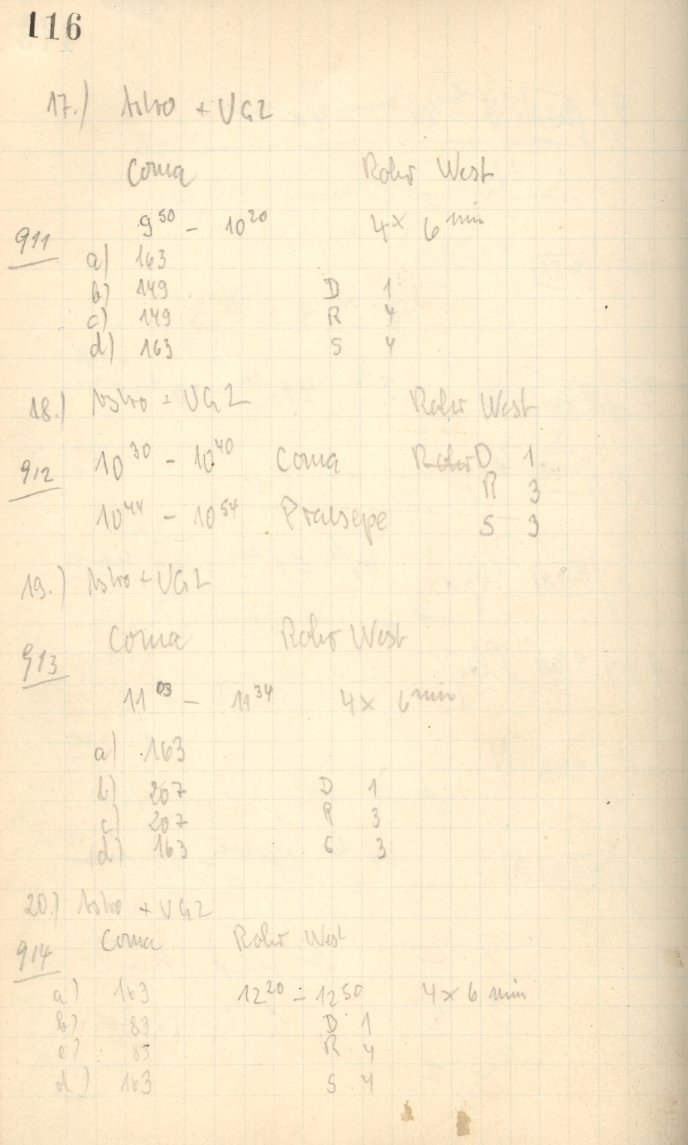 116
17.) Astro + UG2
Coma Rohr West
911 9 50 - 10 20 4x 6 min
a) 163
b) 149 D 1
c) 149 R 4
d) 163 S 4
18.) Astro + UG2 Rohr West
912 10 30 - 10 40 Coma Rohr D 1
R 3
10 44 - 10 54 Praesepe S 3
19.) Astro + UG2
Coma Rohr West
913
11 03 - 11 34 4x 6 min
a) 163
b) 207 D 1
c) 207 R 3
d) 163 S 3
20.) Astro + UG2
Coma Rohr West
914
a) 163 12 20 - 12 50 4x 6 min
b) 83 D 1
c) 83 R 4
d) 163 S 4